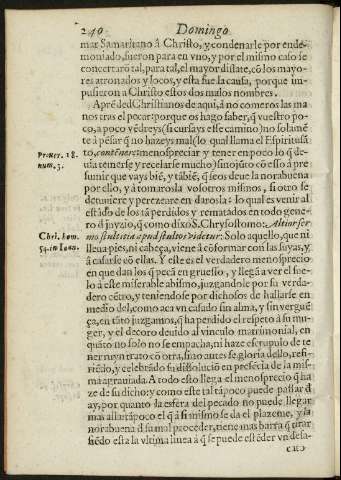 240 Domingo
mar Samaritano â Christo, y condenarle por ende-
moniado, fueron para en vno, y por el mismo caso se
concertarõ tal, para tal, el mayor dislate, cõ los mayo-
res atronados y locos, y esta fue la causa, porque im-
pusieron a Christo estos dos malos nombres.
Aprẽded Christianos de aqui, â no comeros las ma
nos tras el pecar: porque os hago saber, q̃ vuestro po-
co, a poco vẽdreys (si cursays esse camino) no solamẽ
te â pẽsar q̃ no hazeys mal (lo qual llama el Espiritusã
Prouer. 18. to, contemnere: menospreciar y tener en poco lo q̃ de-
num. 3. uia temerse y recelarse mucho) sino juto cõ esso â pre
sumir que vays biẽ, y tãbiẽ, q̃ seos deue la norabuena
por ello, y â tomarosla vosotros mismos, si otro se
detuuiere y perezere en darosla: lo qual es venir al
estãdo de los tã perdidos y rematados en todo gene-
ro d̃ juyzio, q̃ como dixo S. Chrysostomo: Altior ser
Chri. hom. mo stultitia apud stultos videtur: Solo aquello, que ni
54. in Ioan. lleua pies, ni cabeça, viene â cõformar con las suyas, y
â casarse cõ ellas. Y este es el verdadero menosprecio
en que dan los q̃ pecã en gruesso, y llegã a ver el sue-
lo â este miserable abismo, juzgandole por su verda-
dero cẽtro, y teniendose por dichosos de hallarse en
medio del, como aca vn casado sin alma, y sin verguẽ
ça, en tãto juzgamos, q̃ ha perdido el respeto â su mu-
ger, y el decoro deuido al vinculo matrimonial, en
quãto no solo no se empacha, ni haze escrupulo de te
ner ruyn trato cõ otra, sino antes se gloria dello, refi-
riẽdo, y celebrãdo su dissoluciõ en presẽcia de la mis-
ma agrauiada. A todo esto llega el menosprecio q̃ ha
ze de su dicho: y como este tal tãpoco puede passar d̃
ay, por quanto la esfera del pecado no puede llegar
mas alla: tãpoco el q̃ â si mismo se da el plazeme, y la
norabuena d̃ su mal proceder, tiene mas barra q̃ tirar
siẽdo esta la vltima linea â q̃ se puede estẽder vn desa-